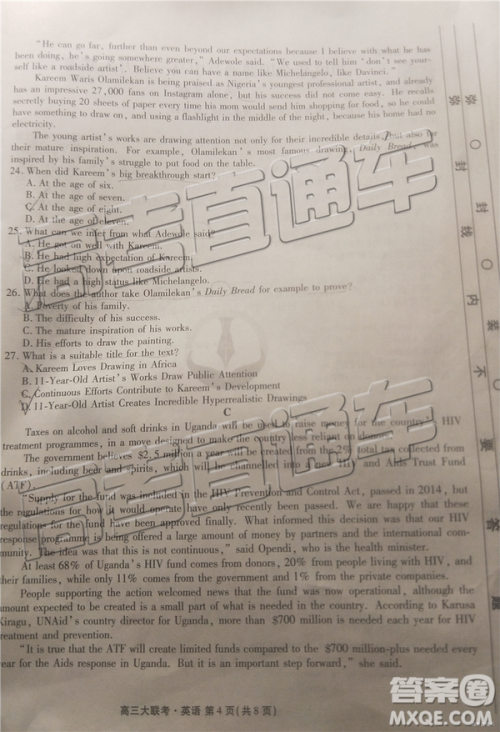 "He can go far, further than even beyond our expectations because I believe with what he has
been doing, he's going somewhere greater," Adewole said. "We used to tell him 'don't see your-
self like a roadside artist'. Believe you can have a name like Michelangelo, like Davinci."
Kareem Waris Olamilekan is being praised as Nigeria's youngest professional artist, and already
has an impressive 27,000 fans on Instagram alone, but his success did not come easy. He recalls
secretly buying 20 sheets of paper every time his mom would send him shopping for food, so he could
have something to draw on, and using a flashlight in the middle of the night, because his home had no
electricity.
The young artist's works are drawing attention not only for their incredible details but also for
their mature inspiration. For example, Olamilekan's most famous drawing, Daily Bread, was
inspired by his family's struggle to put food on the table.
24. When did Kareem's big breakthrough start?
A. At the age of six.
B. At the age of seven.
C. At the age of eight.
D. At the age of eleven.
25. What can we infer from what Adewole said?
A. He got on well with Kareem.
B. He had high expectation of Kareem.
C. He looked down upon roadside artists.
D. He had a high status like Michelangelo.
26. What does the author take Olamilekan's Daily Bread for example to prove?
A. Poverty of his family.
B. The difficulty of his success.
C. The mature inspiration of his works.
D. His efforts to draw the painting.
27. What is a suitable title for the text?
A. Kareem Loves Drawing in Africa
B. 11-Year-Old Artist's Works Draw Public Attention
C. Continuous Efforts Contribute to Kareem's Development
D. 11-Year-Old Artist Creates Incredible Hyperrealistic Drawings
C
Taxes on alcohol and soft drinks in Uganda will be used to raise money for the country's HIV
treatment programmes, in a move designed to make the country less reliant on donors.
The government believes $2.5 million a year will be created from the 2% total tax collected from
drinks, including beer and spirits, which will be channelled into a new HIV and Aids Trust Fund
(ATF).
"Supply for the fund was included in the HIV Prevention and Control Act, passed in 2014, but
the regulations for how it would operate have only recently been passed. We are happy that these
regulations for the fund have been approved finally. What informed this decision was that our HIV
response programme is being offered a large amount of money by partners and the international com-
munity. The idea was that this is not continuous," said Opendi, who is the health minister.
At least 68% of Uganda's HIV fund comes from donors, 20% from people living with HIV, and
their families, while only 11% comes from the government and 1% from the private companies.
People supporting the action welcomed news that the fund was now operational, although the
amount expected to be created is a small part of what is needed in the country. According to Karusa
Kiragu, UNAids's country director for Uganda, more than $700 million is needed each year for HIV
treatment and prevention.
"It is true that the ATF will create limited funds compared to the $700 million-plus needed every
year for the Aids response in Uganda. But it is an important step forward," she said.
高三大联考·英语 第4页(共8页)
密
封
线
内
要
不
答
题
高考直通车
高考直通车
答案圈
MXQE.COM